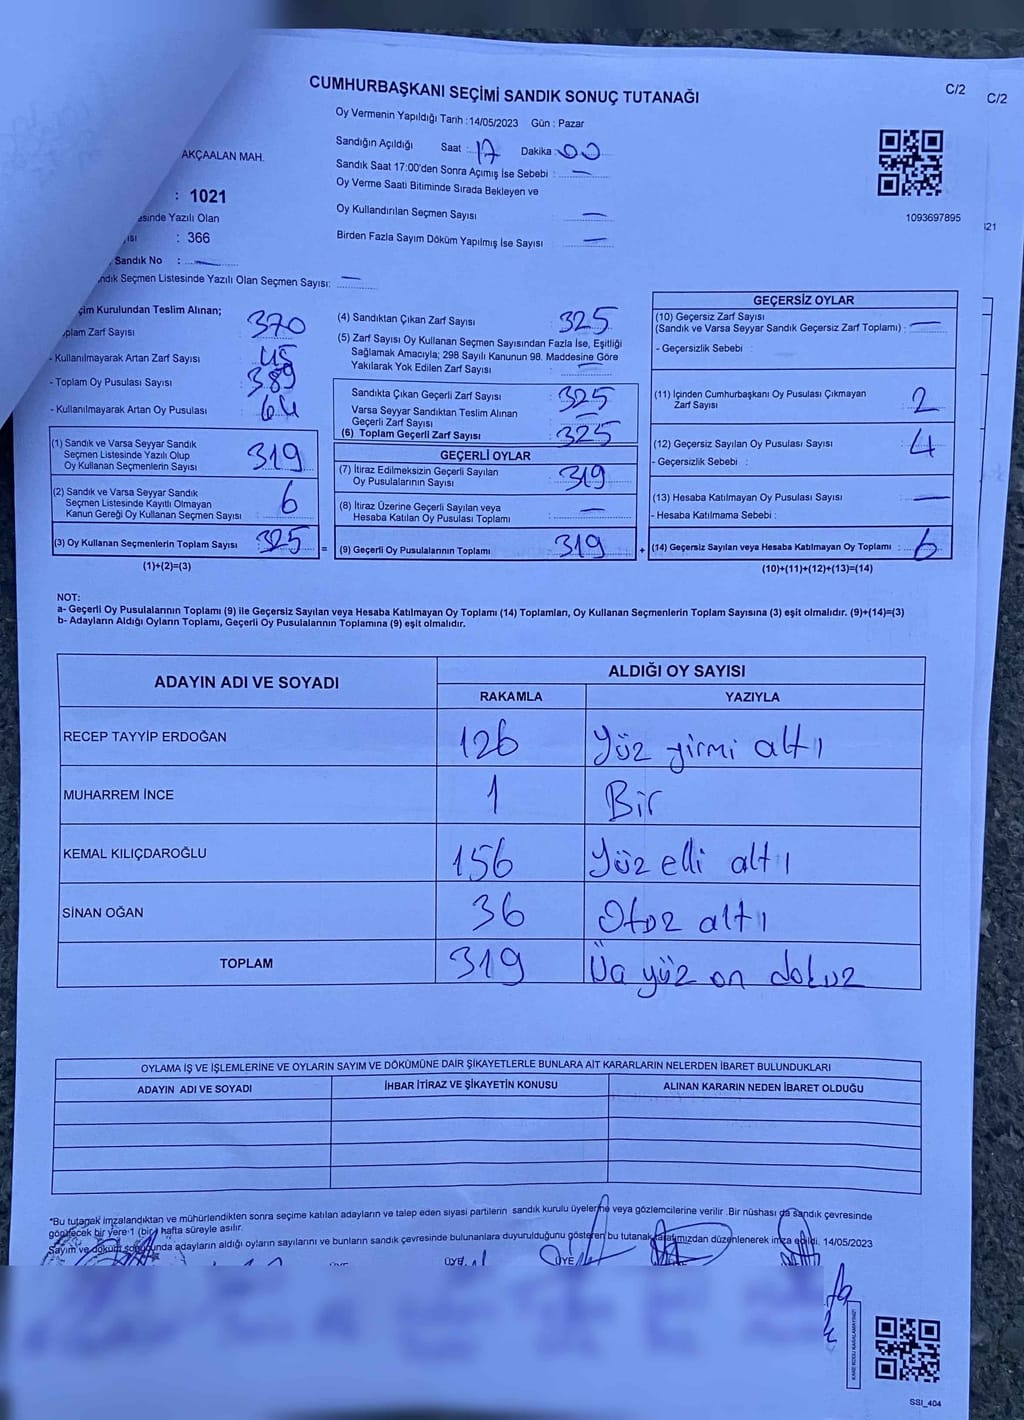 CUMHURBAŞKANI SEÇİMİ SANDIK SONUÇ TUTANAĞI
C/2
C/2
Oy Vermenin Yapıldığı Tarih :14/05/2023 Gün : Pazar
Sandığın Açıldığı Saat : 17 Dakika : 00
Sandık Saat 17:00'den Sonra Açımış İse Sebebi : —
Oy Verme Saati Bitiminde Sırada Bekleyen ve
Oy Kullandırılan Seçmen Sayısı —
Birden Fazla Sayım Döküm Yapılmış İse Sayısı —
AKÇAALAN MAH.
: 1021
esinde Yazılı Olan
: 366
Sandık No : —
Seçmen Listesinde Yazılı Olan Seçmen Sayısı: —
1093697895
Kurulundan Teslim Alınan;
Zarf Sayısı 370
- Kullanılmayarak Artan Zarf Sayısı 45
- Toplam Oy Pusulası Sayısı 389
- Kullanılmayarak Artan Oy Pusulası 64
(1) Sandık ve Varsa Seyyar Sandık
Seçmen Listesinde Yazılı Olup
Oy Kullanan Seçmenlerin Sayısı 319
(2) Sandık ve Varsa Seyyar Sandık
Seçmen Listesinde Kayıtlı Olmayan
Kanun Gereği Oy Kullanan Seçmen Sayısı 6
(3) Oy Kullanan Seçmenlerin Toplam Sayısı 325 =
(1)+(2)=(3)
(4) Sandıktan Çıkan Zarf Sayısı 325
(5) Zarf Sayısı Oy Kullanan Seçmen Sayısından Fazla İse, Eşitliği
Sağlamak Amacıyla; 298 Sayılı Kanunun 98. Maddesine Göre
Yakılarak Yok Edilen Zarf Sayısı —
Sandıkta Çıkan Geçerli Zarf Sayısı 325
Varsa Seyyar Sandıktan Teslim Alınan
Geçerli Zarf Sayısı —
(6) Toplam Geçerli Zarf Sayısı 325
GEÇERLİ OYLAR
(7) İtiraz Edilmeksizin Geçerli Sayılan
Oy Pusulalarının Sayısı 319
(8) İtiraz Üzerine Geçerli Sayılan veya
Hesaba Katılan Oy Pusulası Toplamı —
(9) Geçerli Oy Pusulalarının Toplamı 319 +
GEÇERSİZ OYLAR
(10) Geçersiz Zarf Sayısı
(Sandık ve Varsa Seyyar Sandık Geçersiz Zarf Toplamı) : —
- Geçersizlik Sebebi :
(11) İçinden Cumhurbaşkanı Oy Pusulası Çıkmayan
Zarf Sayısı 2
(12) Geçersiz Sayılan Oy Pusulası Sayısı 4
- Geçersizlik Sebebi :
(13) Hesaba Katılmayan Oy Pusulası Sayısı —
- Hesaba Katılmama Sebebi :
(14) Geçersiz Sayılan veya Hesaba Katılmayan Oy Toplamı : 6
(10)+(11)+(12)+(13)=(14)
NOT:
a- Geçerli Oy Pusulalarının Toplamı (9) ile Geçersiz Sayılan veya Hesaba Katılmayan Oy Toplamı (14) Toplamları, Oy Kullanan Seçmenlerin Toplam Sayısına (3) eşit olmalıdır. (9)+(14)=(3)
b- Adayların Aldığı Oyların Toplamı, Geçerli Oy Pusulalarının Toplamına (9) eşit olmalıdır.
ADAYIN ADI VE SOYADI ALDIĞI OY SAYISI
RAKAMLA YAZIYLA
RECEP TAYYİP ERDOĞAN 126 Yüz yirmi altı
MUHARREM İNCE 1 Bir
KEMAL KILIÇDAROĞLU 156 Yüz elli altı
SİNAN OĞAN 36 Otuz altı
TOPLAM 319 yüz on dokuz
OYLAMA İŞ VE İŞLEMLERİNE VE OYLARIN SAYIM VE DÖKÜMÜNE DAİR ŞİKAYETLERLE BUNLARA AİT KARARLARIN NELERDEN İBARET BULUNDUKLARI
ADAYIN ADI VE SOYADI İHBAR İTİRAZ VE ŞİKAYETİN KONUSU ALINAN KARARIN NEDEN İBARET OLDUĞU
*Bu tutanak imzalandıktan ve mühürlendikten sonra seçime katılan adayların ve talep eden siyasi partilerin sandık kurulu üyelerine veya gözlemcilerine verilir .Bir nüshası da sandık çevresinde
görülecek bir yere 1 (bir) hafta süreyle asılır.
Sayım ve döküm sonucunda adayların aldığı oyların sayılarını ve bunların sandık çevresinde bulunanlara duyurulduğunu gösteren bu tutanak tarafımızdan düzenlenerek imza edildi. 14/05/2023
ÜYE ÜYE
SSI_404